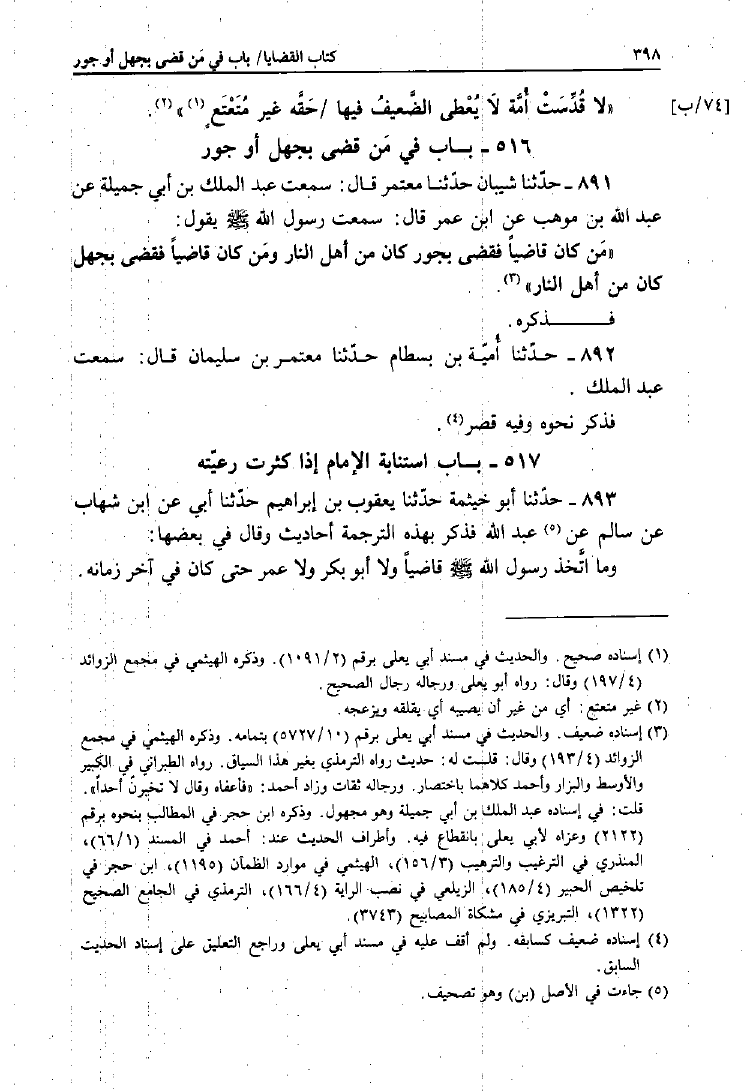 ٣٩٨ كتاب القضايا/ باب في مَن قضى بجهل أو جور
[٧٤/ب] «لا قُدِّسَتْ أُمَّة لَا يُعْطى الضَّعيفُ فيها /حَقَّه غير مُتَعْتَعٍ (١)» (٢).
٥١٦ - بـاب في مَن قضى بجهل أو جور
٨٩١ - حدّثنا شيبان حدّثنـا معتمر قـال: سمعت عبد الملك بن أبي جميلة عن
عبد الله بن موهب عن ابن عمر قال: سمعت رسول الله ﷺ يقول:
«مَن كان قاضياً فقضى بجور كان من أهل النار ومَن كان قاضياً فقضى بجهل
كان من أهل النار» (٣).
فـــــذكره.
٨٩٢ - حـدّثنا أُميّـة بن بسطام حـدّثنا معتمـر بن سليمان قـال: سمعت
عبد الملك .
فذكر نحوه وفيه قصر(٤).
٥١٧ - بـاب استنابة الإمام إذا كثرت رعيّته
٨٩٣ - حدّثنا أبو خيثمة حدّثنا يعقوب بن إبراهيم حدّثنا أبي عن ابن شهاب
عن سالم عن (٥) عبد الله فذكر بهذه الترجمة أحاديث وقال في بعضها:
وما اتَّخذ رسول الله ﷺ قاضياً ولا أبو بكر ولا عمر حتى كان في آخر زمانه.
(١) إسناده صحيح. والحديث في مسند أبي يعلى برقم (١٠٩١/٢). وذكره الهيثمي في مجمع الزوائد
(١٩٧/٤) وقال: رواه أبو يعلى ورجاله رجال الصحيح.
(٢) غير متعتع: أي من غير أن يصيبه أي يقلقه ويزعجه.
(٣) إسناده ضعيف. والحديث في مسند أبي يعلى برقم (٥٧٢٧/١٠) بتمامه. وذكره الهيثمي في مجمع
الزوائد (١٩٣/٤) وقال: قلت له: حديث رواه الترمذي بغير هذا السياق. رواه الطبراني في الكبير
والأوسط والبزار وأحمد كلاهما باختصار. ورجاله ثقات وزاد أحمد: «فأعفاه وقال لا تخبرنّ أحداً».
قلت: في إسناده عبد الملك بن أبي جميلة وهو مجهول. وذكره ابن حجر في المطالب بنحوه برقم
(٢١٢٢) وعزاه لأبي يعلى بانقطاع فيه. وأطراف الحديث عند: أحمد في المسند (٦٦/١)،
المنذري في الترغيب والترهيب (١٥٦/٣)، الهيثمي في موارد الظمآن (١١٩٥)، ابن حجر في
تلخيص الحبير (١٨٥/٤)، الزيلعي في نصب الراية (١٦٦/٤)، الترمذي في الجامع الصحيح
(١٣٢٢)، التبريزي في مشكاة المصابيح (٣٧٤٣).
(٤) إسناده ضعيف كسابقه. ولم أقف عليه في مسند أبي يعلى وراجع التعليق على إسناد الحديث
السابق.
(٥) جاءت في الأصل (بن) وهو تصحيف.